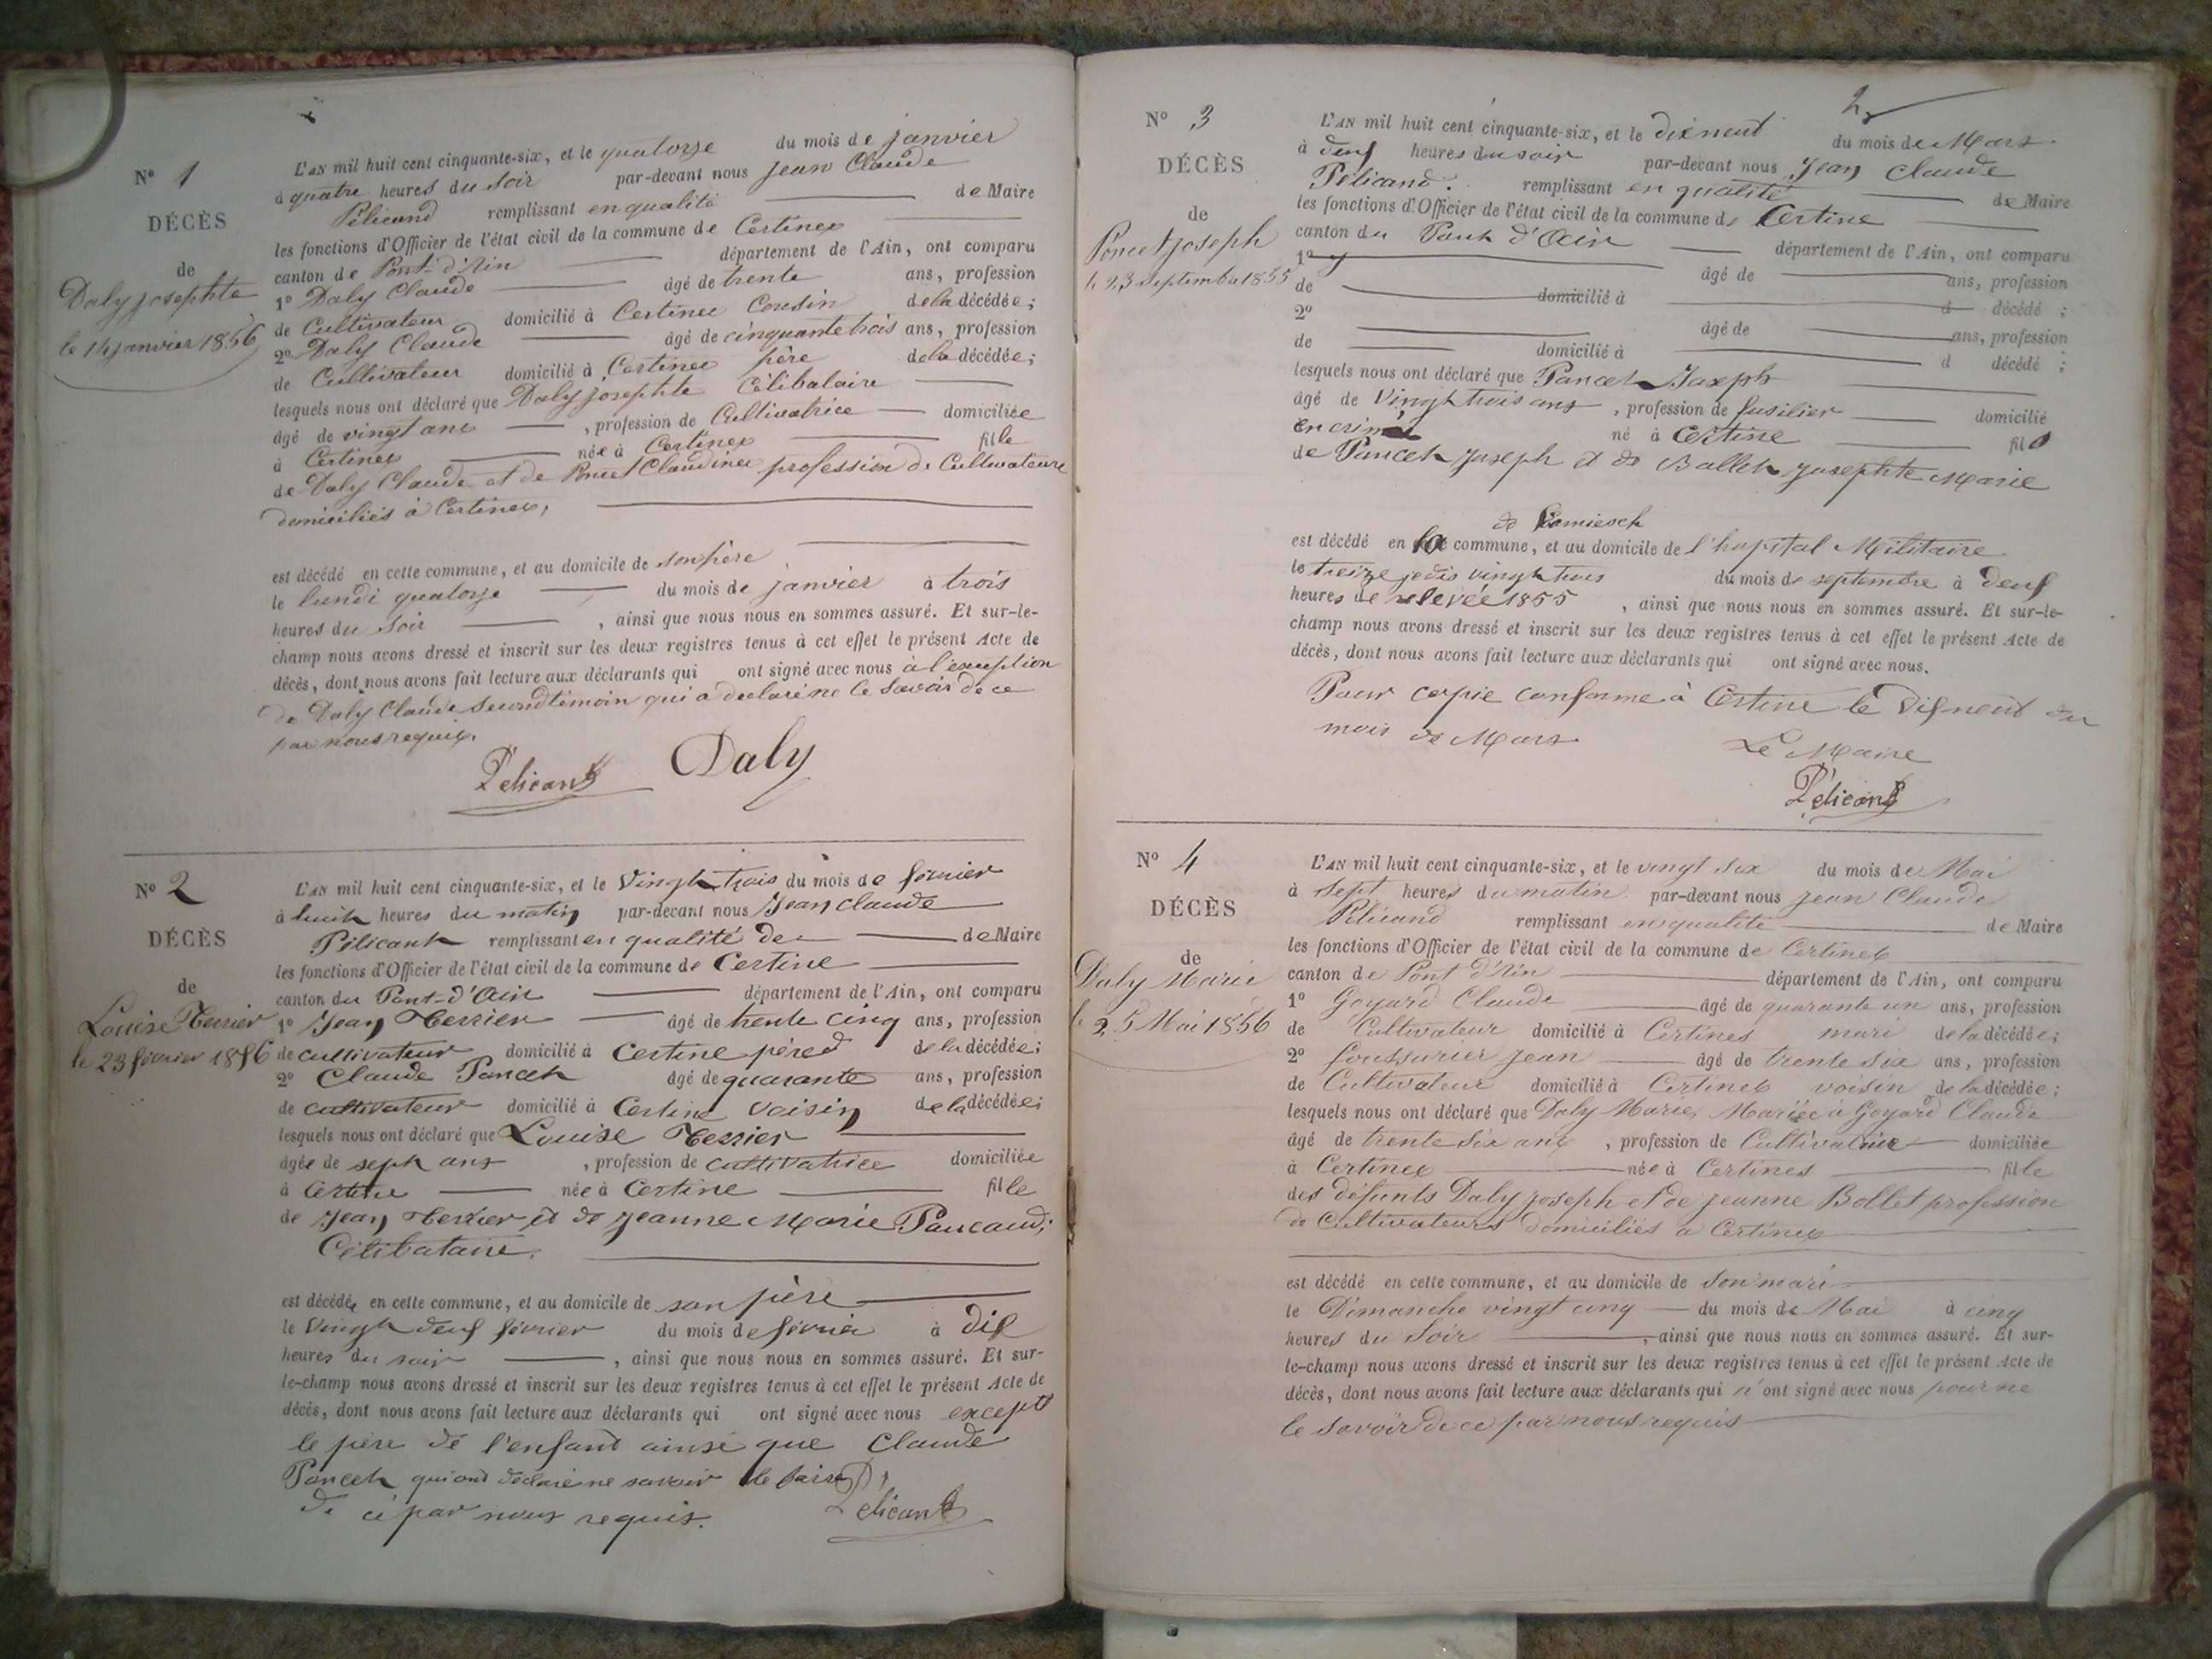 N° 1
DÉCÈS
de
Daly josephte
le 14 janvier 1856
L'AN mil huit cent cinquante-six, et le quatorze du mois de janvier
à quatre heures du soir par-devant nous Jean Claude
Pélicand remplissant en qualité de Maire
les fonctions d'Officier de l'état civil de la commune de Certines
canton de Pont-d'Ain département de l'Ain, ont comparu
1° Daly Claude âgé de trente ans, profession
de Cultivateur domicilié à Certines Cousin de la décédée;
2° Daly Claude âgé de cinquante trois ans, profession
de Cultivateur domicilié à Certines père de la décédée;
lesquels nous ont déclaré que Daly josephte Célibataire
âgé de vingt ans , profession de Cultivatrice domiciliée
à Certines née à Certines fille
de Daly Claude et de Poncet Claudine profession de Cultivateurs
domiciliés à Certines,
est décédé en cette commune, et au domicile de son père
le lundi quatorze du mois de janvier à trois
heures du soir , ainsi que nous nous en sommes assuré. Et sur-le-
champ nous avons dressé et inscrit sur les deux registres tenus à cet effet le présent Acte de
décès, dont nous avons fait lecture aux déclarants qui ont signé avec nous à l'exception
de Daly Claude second témoin qui a déclaré ne le savoir de ce
par nous requis.
Pélicand Daly
N° 2
DÉCÈS
de
Louise Terrier
le 23 février 1856
L'AN mil huit cent cinquante-six, et le Vingt trois du mois de février
à huit heures du matin par-devant nous Jean Claude
Pélicant remplissant en qualité de de Maire
les fonctions d'Officier de l'état civil de la commune de Certine
canton du Pont-d'Ain département de l'Ain, ont comparu
1° Jean Terrier âgé de trente cinq ans, profession
de cultivateur domicilié à Certine père de la décédée;
2° Claude Poncet âgé de quarante ans, profession
de cultivateur domicilié à Certine voisin de la décédée;
lesquels nous ont déclaré que Louise Terrier
âgée de sept ans , profession de cultivatrice domiciliée
à Certine née à Certine fille
de Jean Terrier et de Jeanne Marie
Célibataire.
est décédée en cette commune, et au domicile de son père
le Vingt deux février du mois de février à dix
heures du soir , ainsi que nous nous en sommes assuré. Et sur-
le-champ nous avons dressé et inscrit sur les deux registres tenus à cet effet le présent Acte de
décès, dont nous avons fait lecture aux déclarants qui ont signé avec nous except
le père de l'enfant ainsi que Claude
Poncet qui ont déclaré ne savoir le faire
de ce par nous requis. Pélicand
2
N° 3
DÉCÈS
de
Poncet joseph
le 23 septembre 1855
L'AN mil huit cent cinquante-six, et le dixneuf du mois de Mars
à deux heures du soir par-devant nous Jean Claude
Pélicand. remplissant en qualité de Maire
les fonctions d'Officier de l'état civil de la commune de Certine
canton du Pont d'Ain département de l'Ain, ont comparu
1° âgé de ans, profession
de domicilié à d décédé ;
2° âgé de ans, profession
de domicilié à d décédé ;
lesquels nous ont déclaré que Poncet Joseph
âgé de Vingt trois ans , profession de fusilier domicilié
en né à Certine fils
de Poncet Joseph et de Bollet Josephte Marie
de Kamiesch
est décédé en la commune, et au domicile de l'hopital Militaire
le treize jedis vingt trois du mois de septembre à deux
heures de relevée 1855 , ainsi que nous nous en sommes assuré. Et sur-le-
champ nous avons dressé et inscrit sur les deux registres tenus à cet effet le présent Acte de
décès, dont nous avons fait lecture aux déclarants qui ont signé avec nous.
Pour copie conforme à Certine le Dixneuf du
mois de Mars
Le Maire
Pélicand
N° 4
DÉCÈS
de
Daly Marie
le 25 Mai 1856
L'AN mil huit cent cinquante-six, et le vingt six du mois de Mai
à sept heures du matin par-devant nous Jean Claude
Pélicand remplissant en qualité de Maire
les fonctions d'Officier de l'état civil de la commune de Certines
canton de Pont d'Ain département de l'Ain, ont comparu
1° Goyard Claude âgé de quarante un ans, profession
de Cultivateur domicilié à Certines mari de la décédée;
2° jean âgé de trente six ans, profession
de Cultivateur domicilié à Certines voisin de la décédée;
lesquels nous ont déclaré que Daly Marie, Mariée à Goyard Claude
âgé de trente six ans , profession de Cultivatrice domiciliée
à Certines née à Certines fille
des défunts Daly joseph et de jeanne Bollet profession
de Cultivateurs domiciliés à Certines
est décédé en cette commune, et au domicile de son mari
le Dimanche vingt cinq du mois de Mai à cinq
heures du soir , ainsi que nous nous en sommes assuré. Et sur-
le-champ nous avons dressé et inscrit sur les deux registres tenus à cet effet le présent Acte de
décès, dont nous avons fait lecture aux déclarants qui n'ont signé avec nous pour ne
le savoir de ce par nous requis